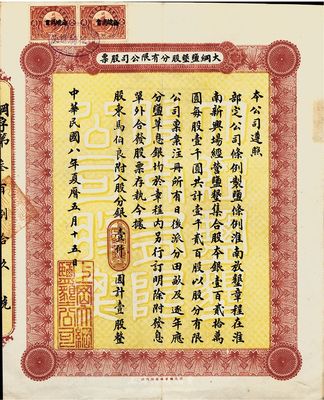 大綱鹽墾股分有限公司股票
本公司遵照
部定公司條例製鹽條例淮南放墾章程在淮
南新興場經營鹽墾集合股本銀壹百貳拾萬
圓每股壹千圓共計壹千貳百股以股分有限
公司稟案注冊所有日後派分田畝及逐年應
分鹽墾息銀均於章程內另行訂明除附發息
單外合發股票存執今據
股東馬伯良附入股分銀壹仟圓計壹股整
中華民國八年夏曆五月十五日
綱字第叁百捌拾久號